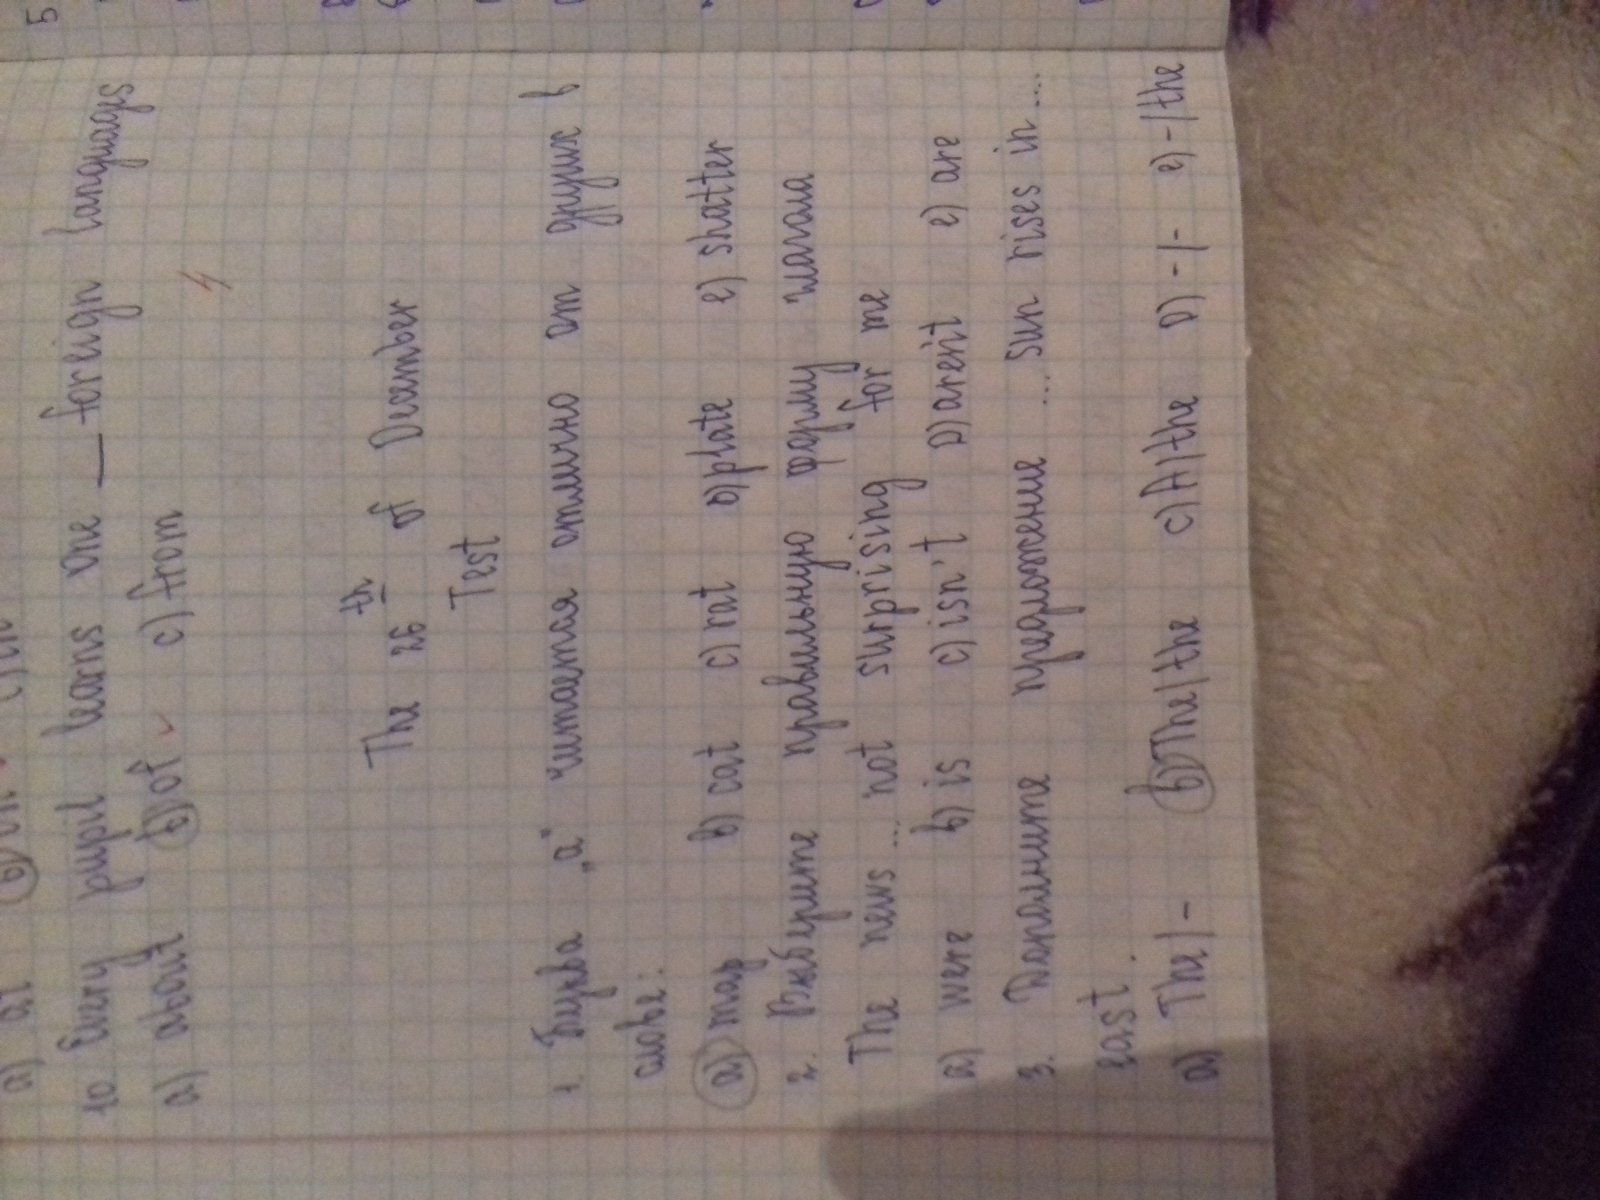 10. Every pupil learns one __ foreign languages
a) about b) of c) from
The 26th of December
Test
1. Буква „а" читается отлично от других в
слове:
a) map b) cat c) rat D) plate e) shatter
2. Выберите правильную форму глагола
The news ... not surprising for me
a) were b) is c) isn't D) aren't e) are
3. Дополните предложение ... sun rises in ...
east.
a) The/- b) The/the c) A/the D) -/- e) -/the